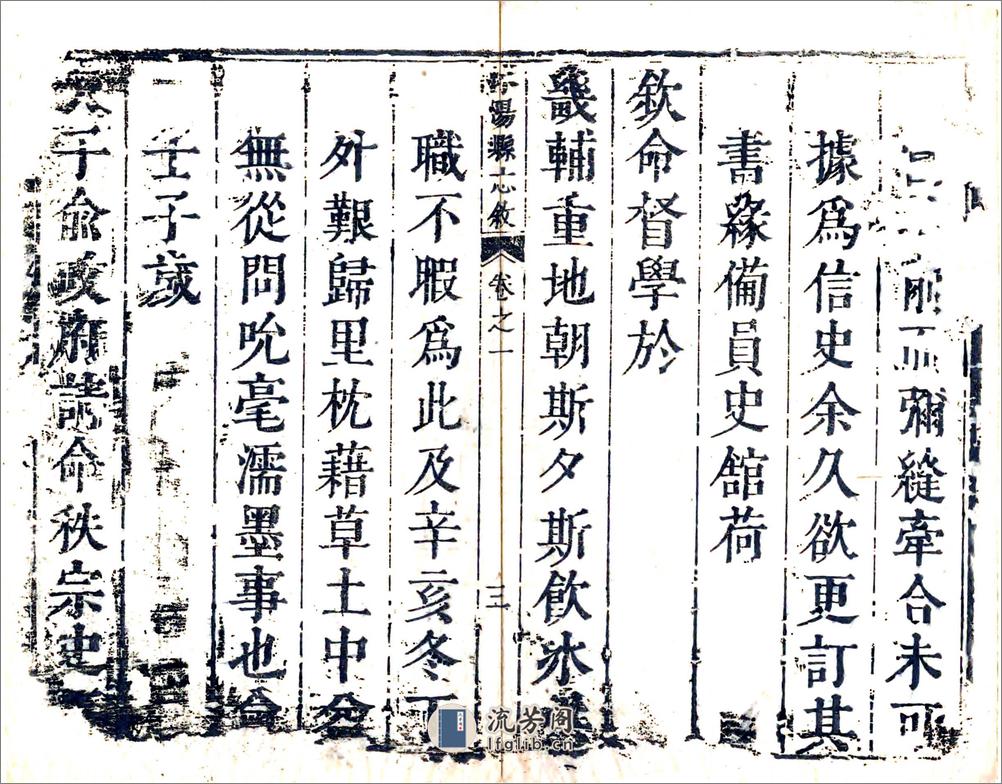 而彌縫牽合未可
據爲信史余久欲更訂其
書緣備員史館荷
欽命督學於
畿輔重地朝斯夕斯飲冰
陽縣志敘 卷之一 三
職不暇爲此及辛亥冬丁
外艱歸里枕藉草土中
無從問吮毫濡墨事也今
壬子歲
天子俞政府請命秩宗史
流芳阁
lfglib.cn